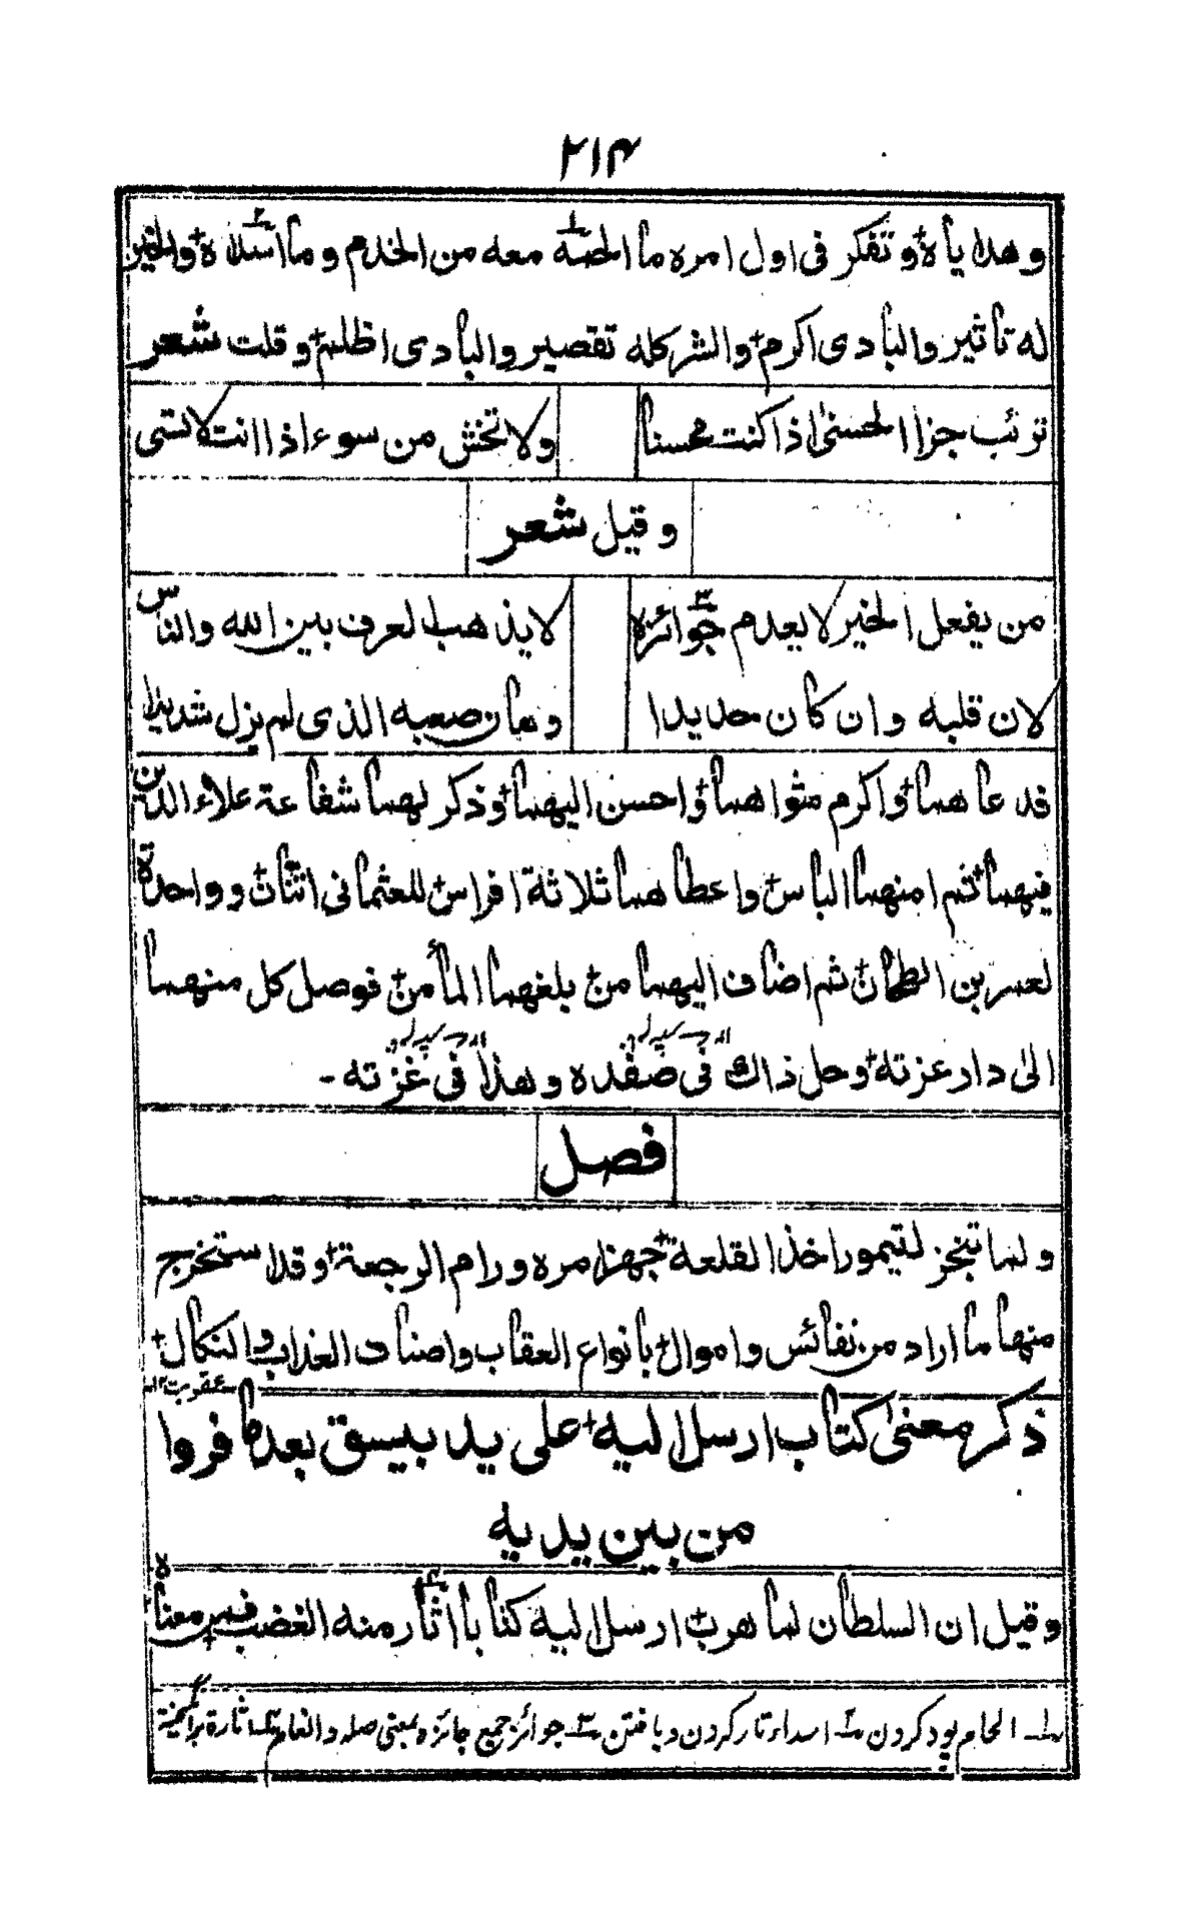 ٢١٤
وهداياه وتفكر فى اول امره ما الحمه معه من الخدم وما اسداه والخير
له تاثير والبادى اكرم والشر كله تقصير والبادى اظلم وقلت شعر
ترئب جزاا لحسنىٰ اذا كنت محسنا ولا تخش من سوء اذا انت لا تسى
وقيل شعر
من يفعل الخير لا يعدم جوائزه لا يذهب العرف بين الله والناس
لان قلبه وان كان حديدا وهان صعبه الذى لم يزل شديدا
فدعاهما واكرم مثواهما واحسن اليهما وذكر لهما شفاعة علاء الدين
فيهما ثم امنهما الباس واعطاهما ثلاثة افراس للعثمانى اثنان وواحدة
لعمر بن الطحان ثم اضاف اليهما من بلغهما المأمن فوصل كل منهما
الىٰ دار عزته وحل ذاك فى صفده وهذا فى غزته -
فصل
ولما تنجز لتيمور اخذ القلعة جهز امره ورام الرجعة وقد استخرج
منها ما اراد من نفائس واموال بانواع العقاب واصناف العذاب والنكال
عقوبت ١٢
ذكر معنىٰ كتاب ارسل اليه على يد بيسق بعد ما فروا
من بين يديه
وقيل ان السلطان لما هرب ارسل اليه كتابا اثار منه الغضب فمن معناه
١ــ الحام پود كردن ٢ــ اسداء تار كردن و بافتن ٣ــ جوائز جمع جائزه بمعنى صله و انعام ٤ــ اثارة برانگيختة